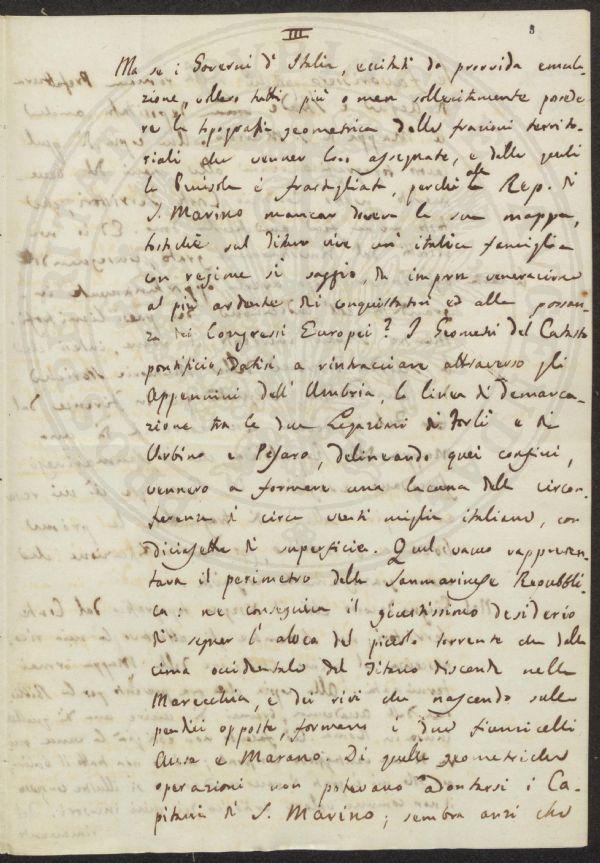 III
3
Ma se i Governi d'Italia, eccitati da provvida emula-
zione, vollero tutti più o men sollecitamente posede-
re la topografia geometrica delle frazioni territo-
riali che venner loro assegnate, e dalle quali
la Penisola è frastagliata, perchè alla Rep. di
S. Marino mancar doveva la sua mappa,
tostochè sul Titano vive un' italica famiglia
con regime sì saggio, da imprimer venerazione
al più ardente dei conquistatori ed alla possan-
za dei Congressi Europei? I Geometri del Catasto
pontificio, datisi a rintracciare attraverso gli
Appennini dell' Umbria, la linea di demarca-
zione tra le due Legazioni di Forlì e di
Urbino e Pesaro, delineando quei confini,
vennero a formare una lacuna della circon-
ferenza di circa venti miglia italiane, con
diciasette di superficie. Quel vacuo rappresen-
tava il perimetro della Sanmarinese Repubbli-
ca: ne conseguiva il giustissimo desiderio
di segnar l' alveo del piccolo torrente che dalla
cima occidentale del Titano discende nella
Marecchia, e dei rivi che nascendo sulle
pendici opposte, formano i due fiumicelli
Ausa e Marano. Di quelle geometriche
operazioni non potevano adontarsi i Ca-
pitani di S. Marino; sembra anzi che